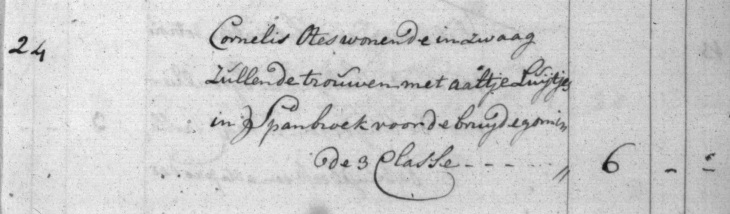 24 Cornelis Otes wonende in zwaag
Zullende trouwen met aaltje Luijtjes
in Spanbroek voor de bruijdegom in
de 3 Classe - - - - „ 6 - -